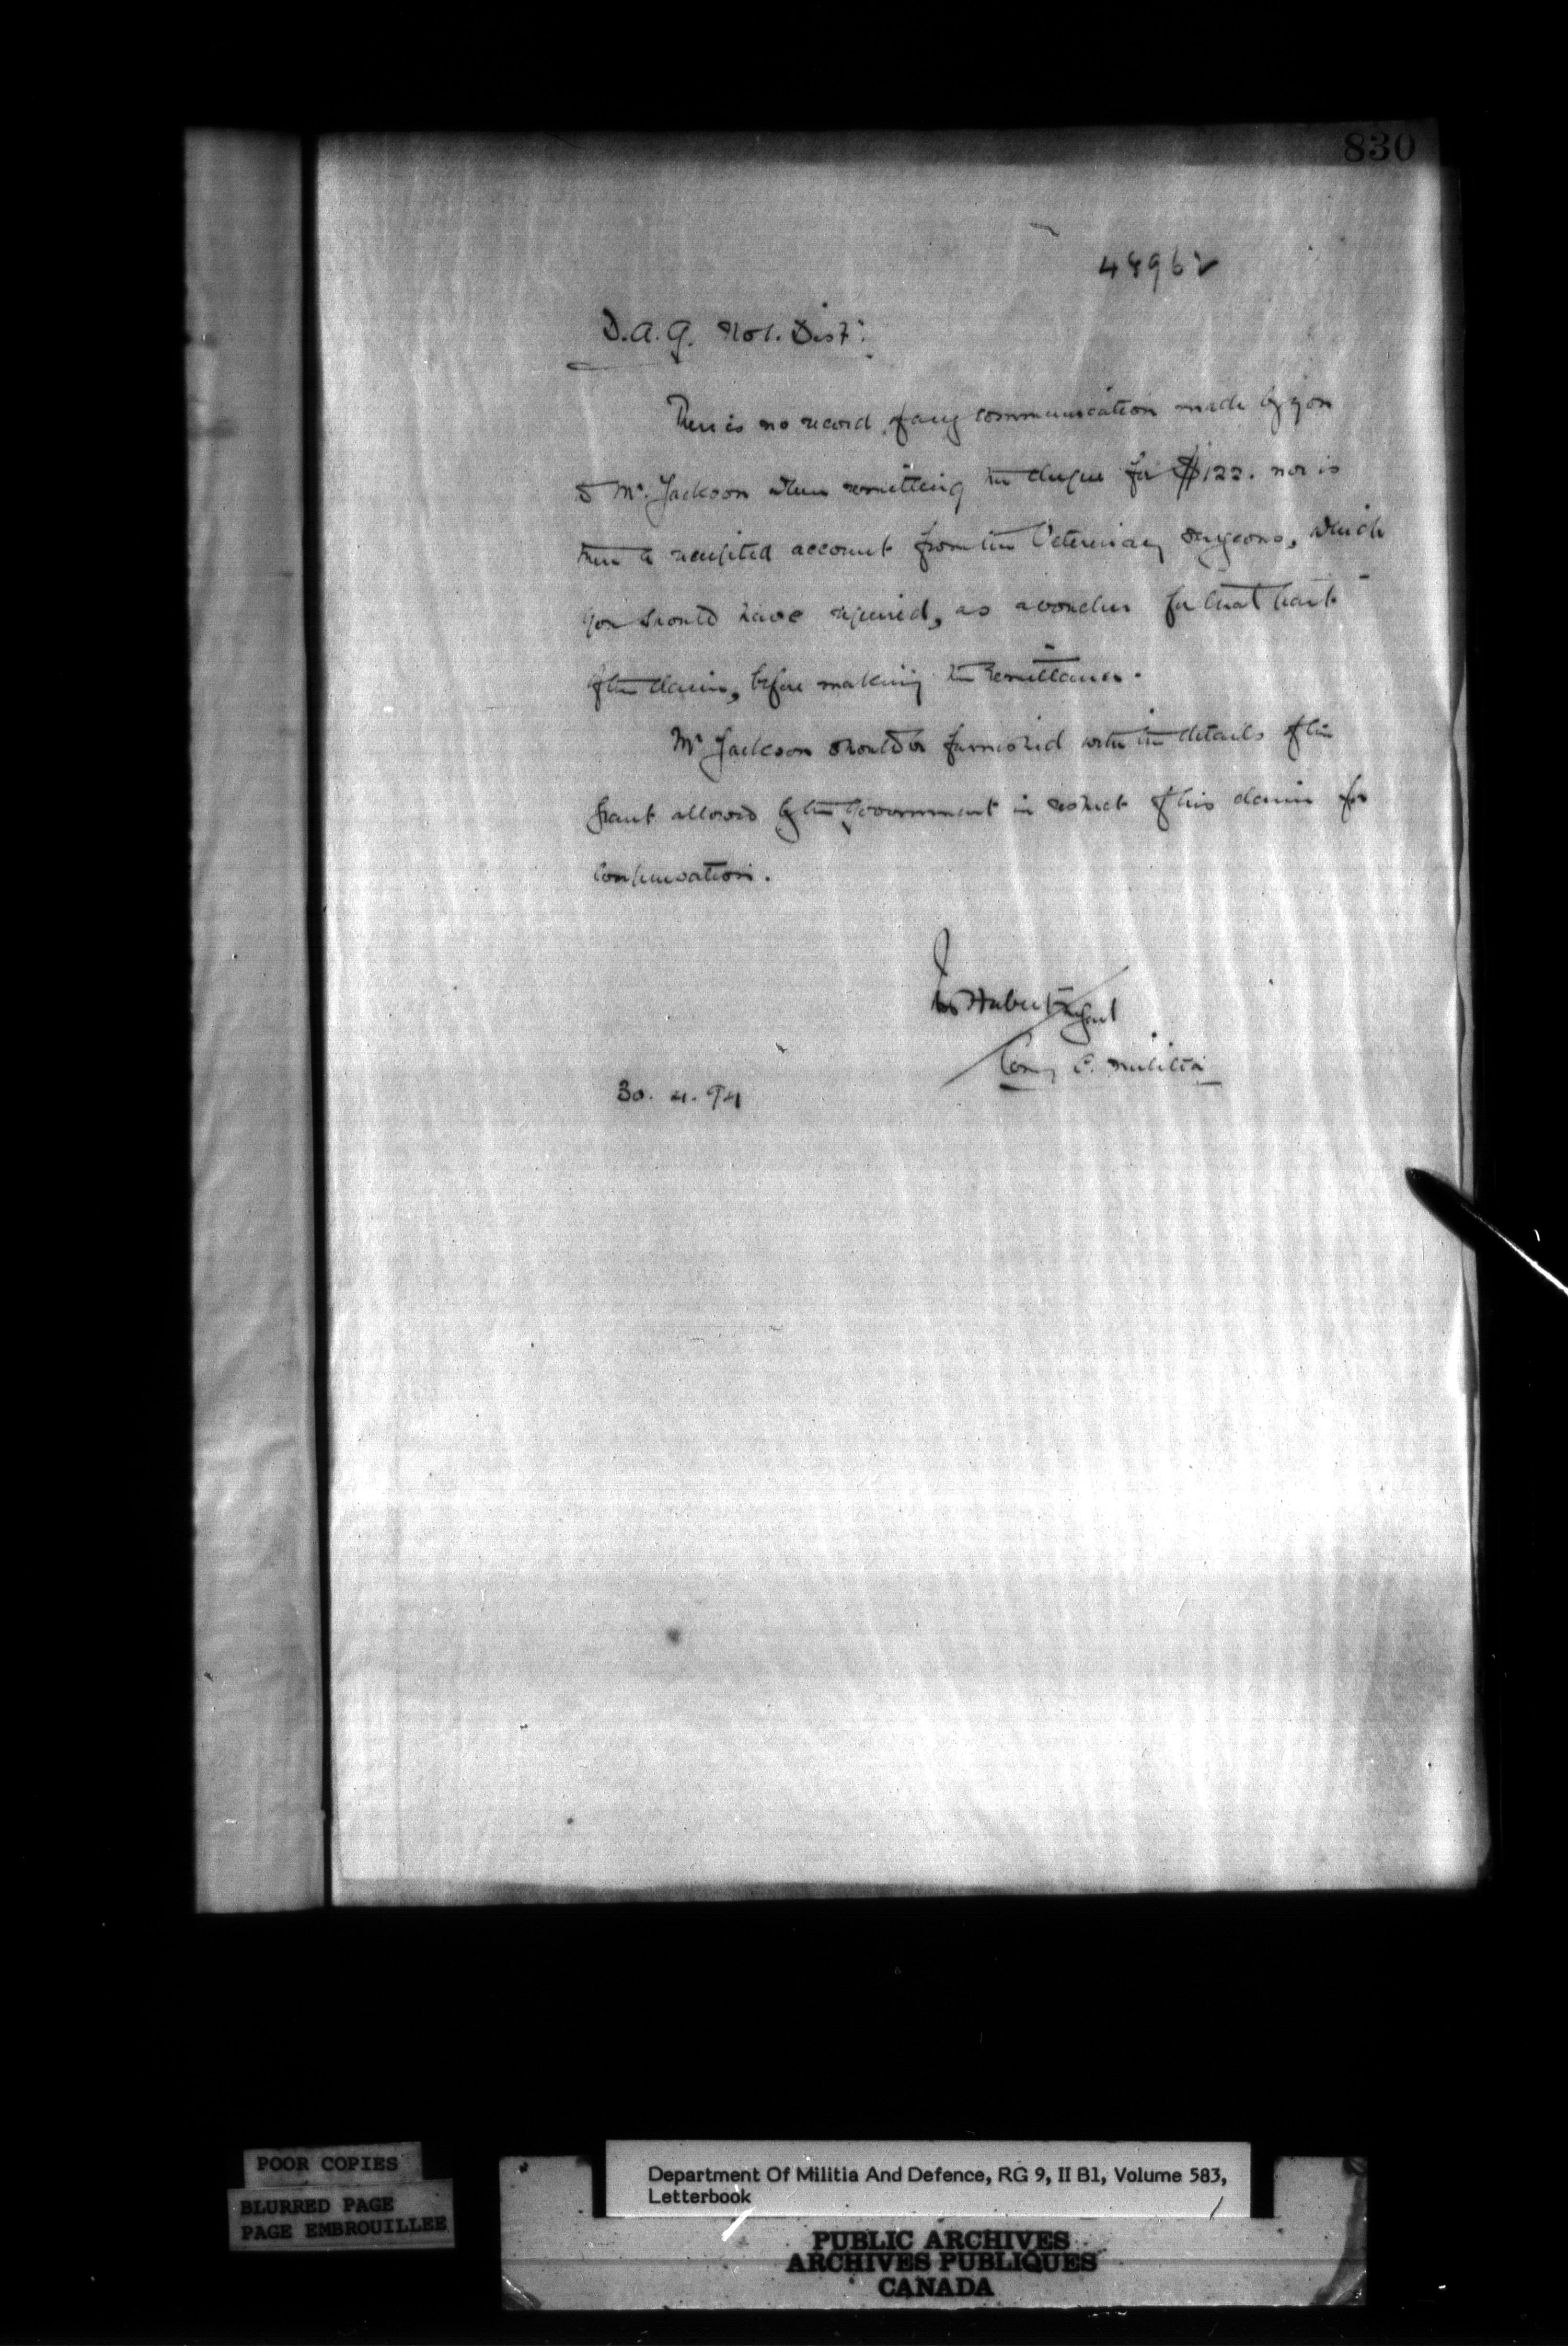 830
44962
D.A.G. No 1. Dist:
There is no record of any communication made by you
to Mr. Jackson when remitting the cheque for $122. nor is
there a receipted account from the Veterinary Surgeons, which
you should have required, as a voucher for that part
of the claim, before making the remittance.
Mr Jackson should be furnished with the details of the
grant allowed by the Government in respect of his claim for
compensation.
Herbert
Comg C. Militia
30. 4. 94
POOR COPIES
BLURRED PAGE
PAGE EMBROUILLEE
Department Of Militia And Defence, RG 9, II B1, Volume 583,
Letterbook
PUBLIC ARCHIVES
ARCHIVES PUBLIQUES
CANADA